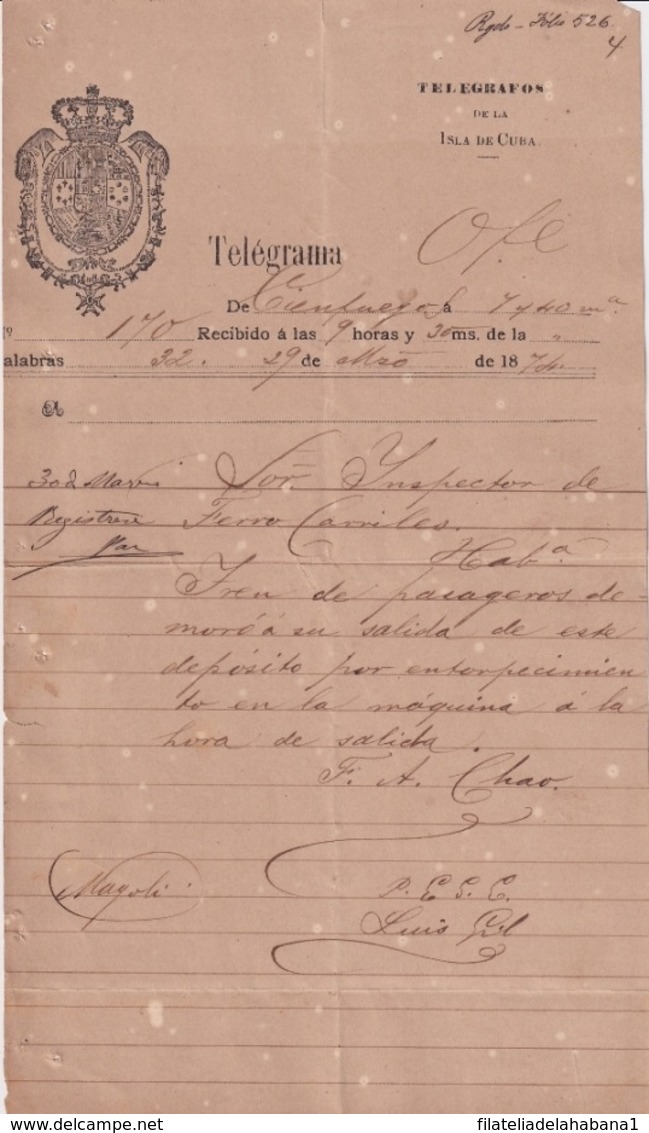 Rgdo - Fólio 526.
4
TELEGRAFOS
DE LA
ISLA DE CUBA.
Ofl
Telégrama
De Cienfuegos á 7 y 40 mª.
Nº 170 Recibido á las 9 horas y 30 ms. de la "
alabras 32. 29 de Mzo de 187
A
30 d Marzo
Registrese
Sor. Inspector de
Ferro Carriles.
Habª.
Tren de pasageros de-
moró á su salida de este
depósito por entorpecimien
to en la máquina á la
hora de salida.
F. A. Chao.
P. E S. E.
Luis Gil
filateliadelahabana1